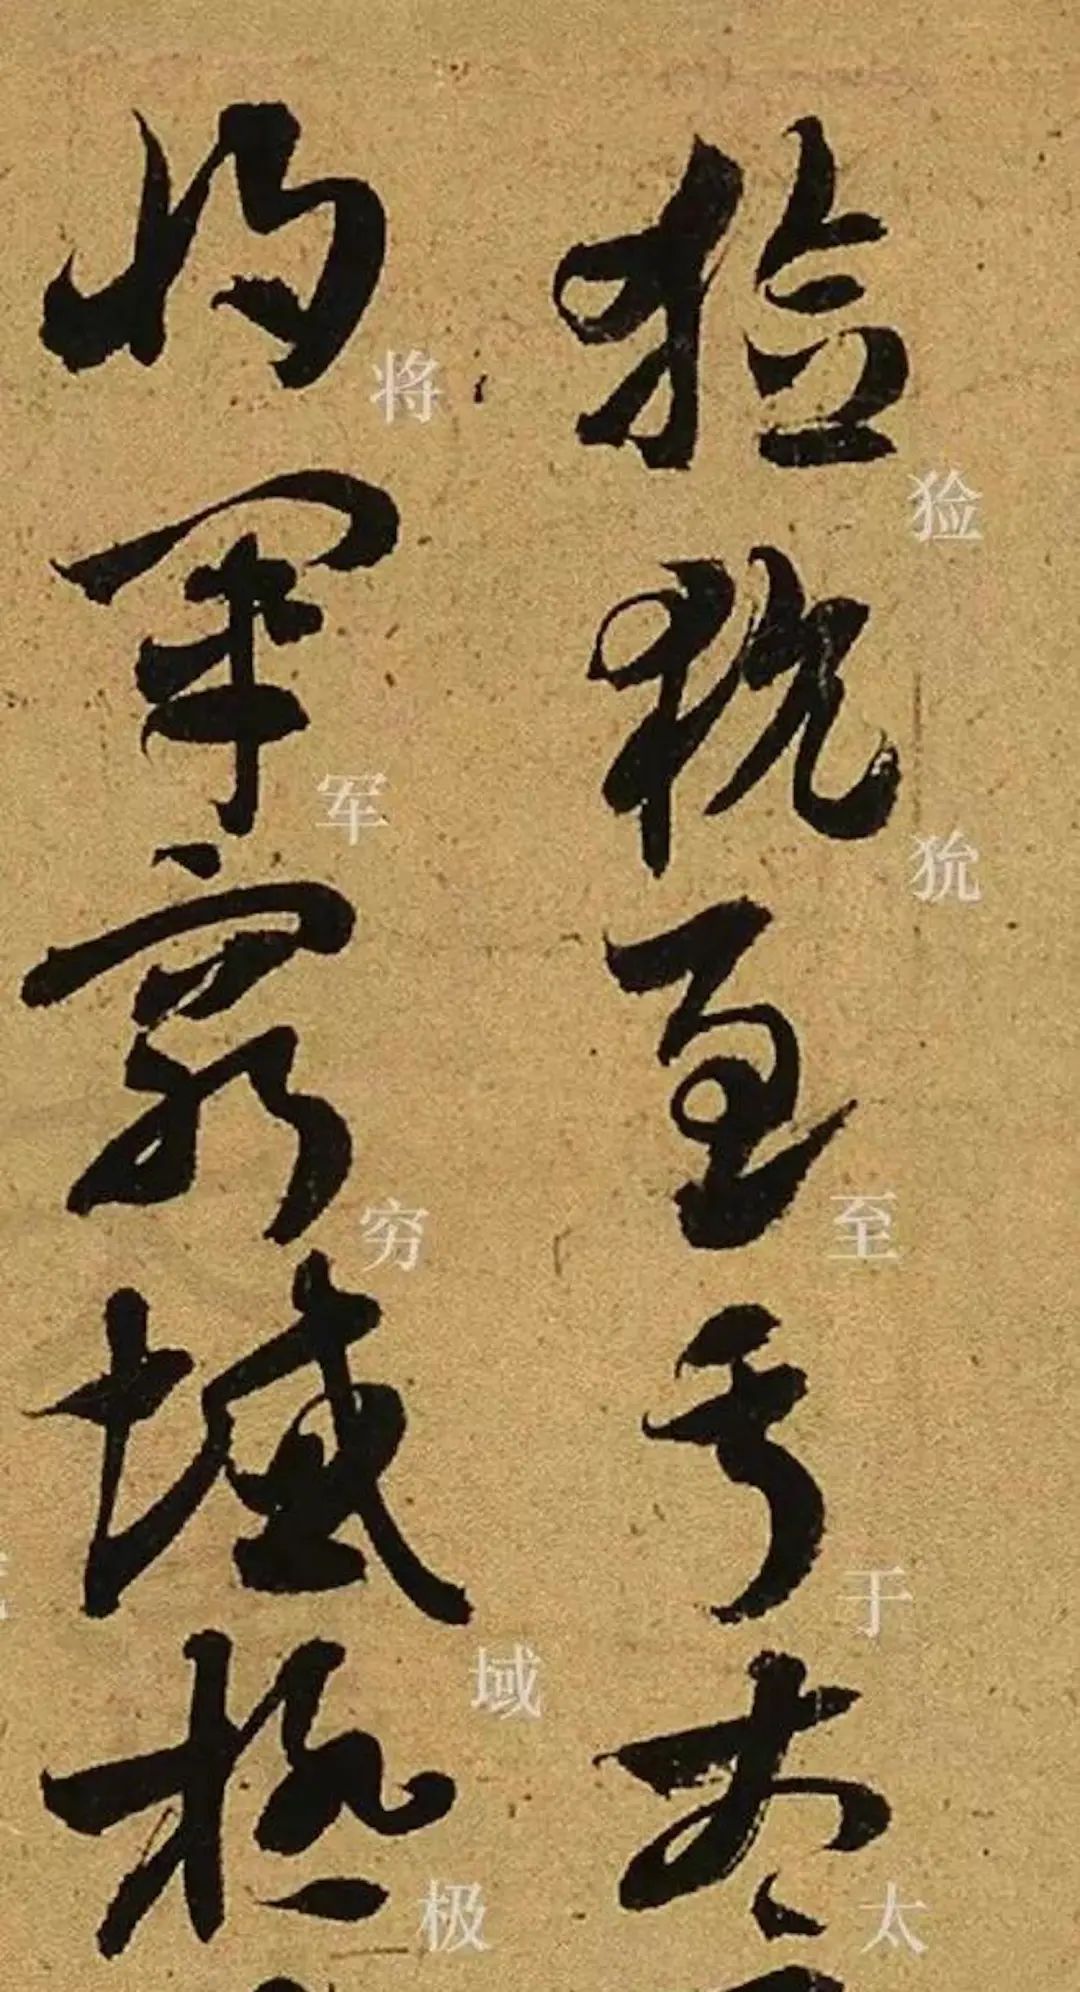 猃狁至于太
将军穷域极